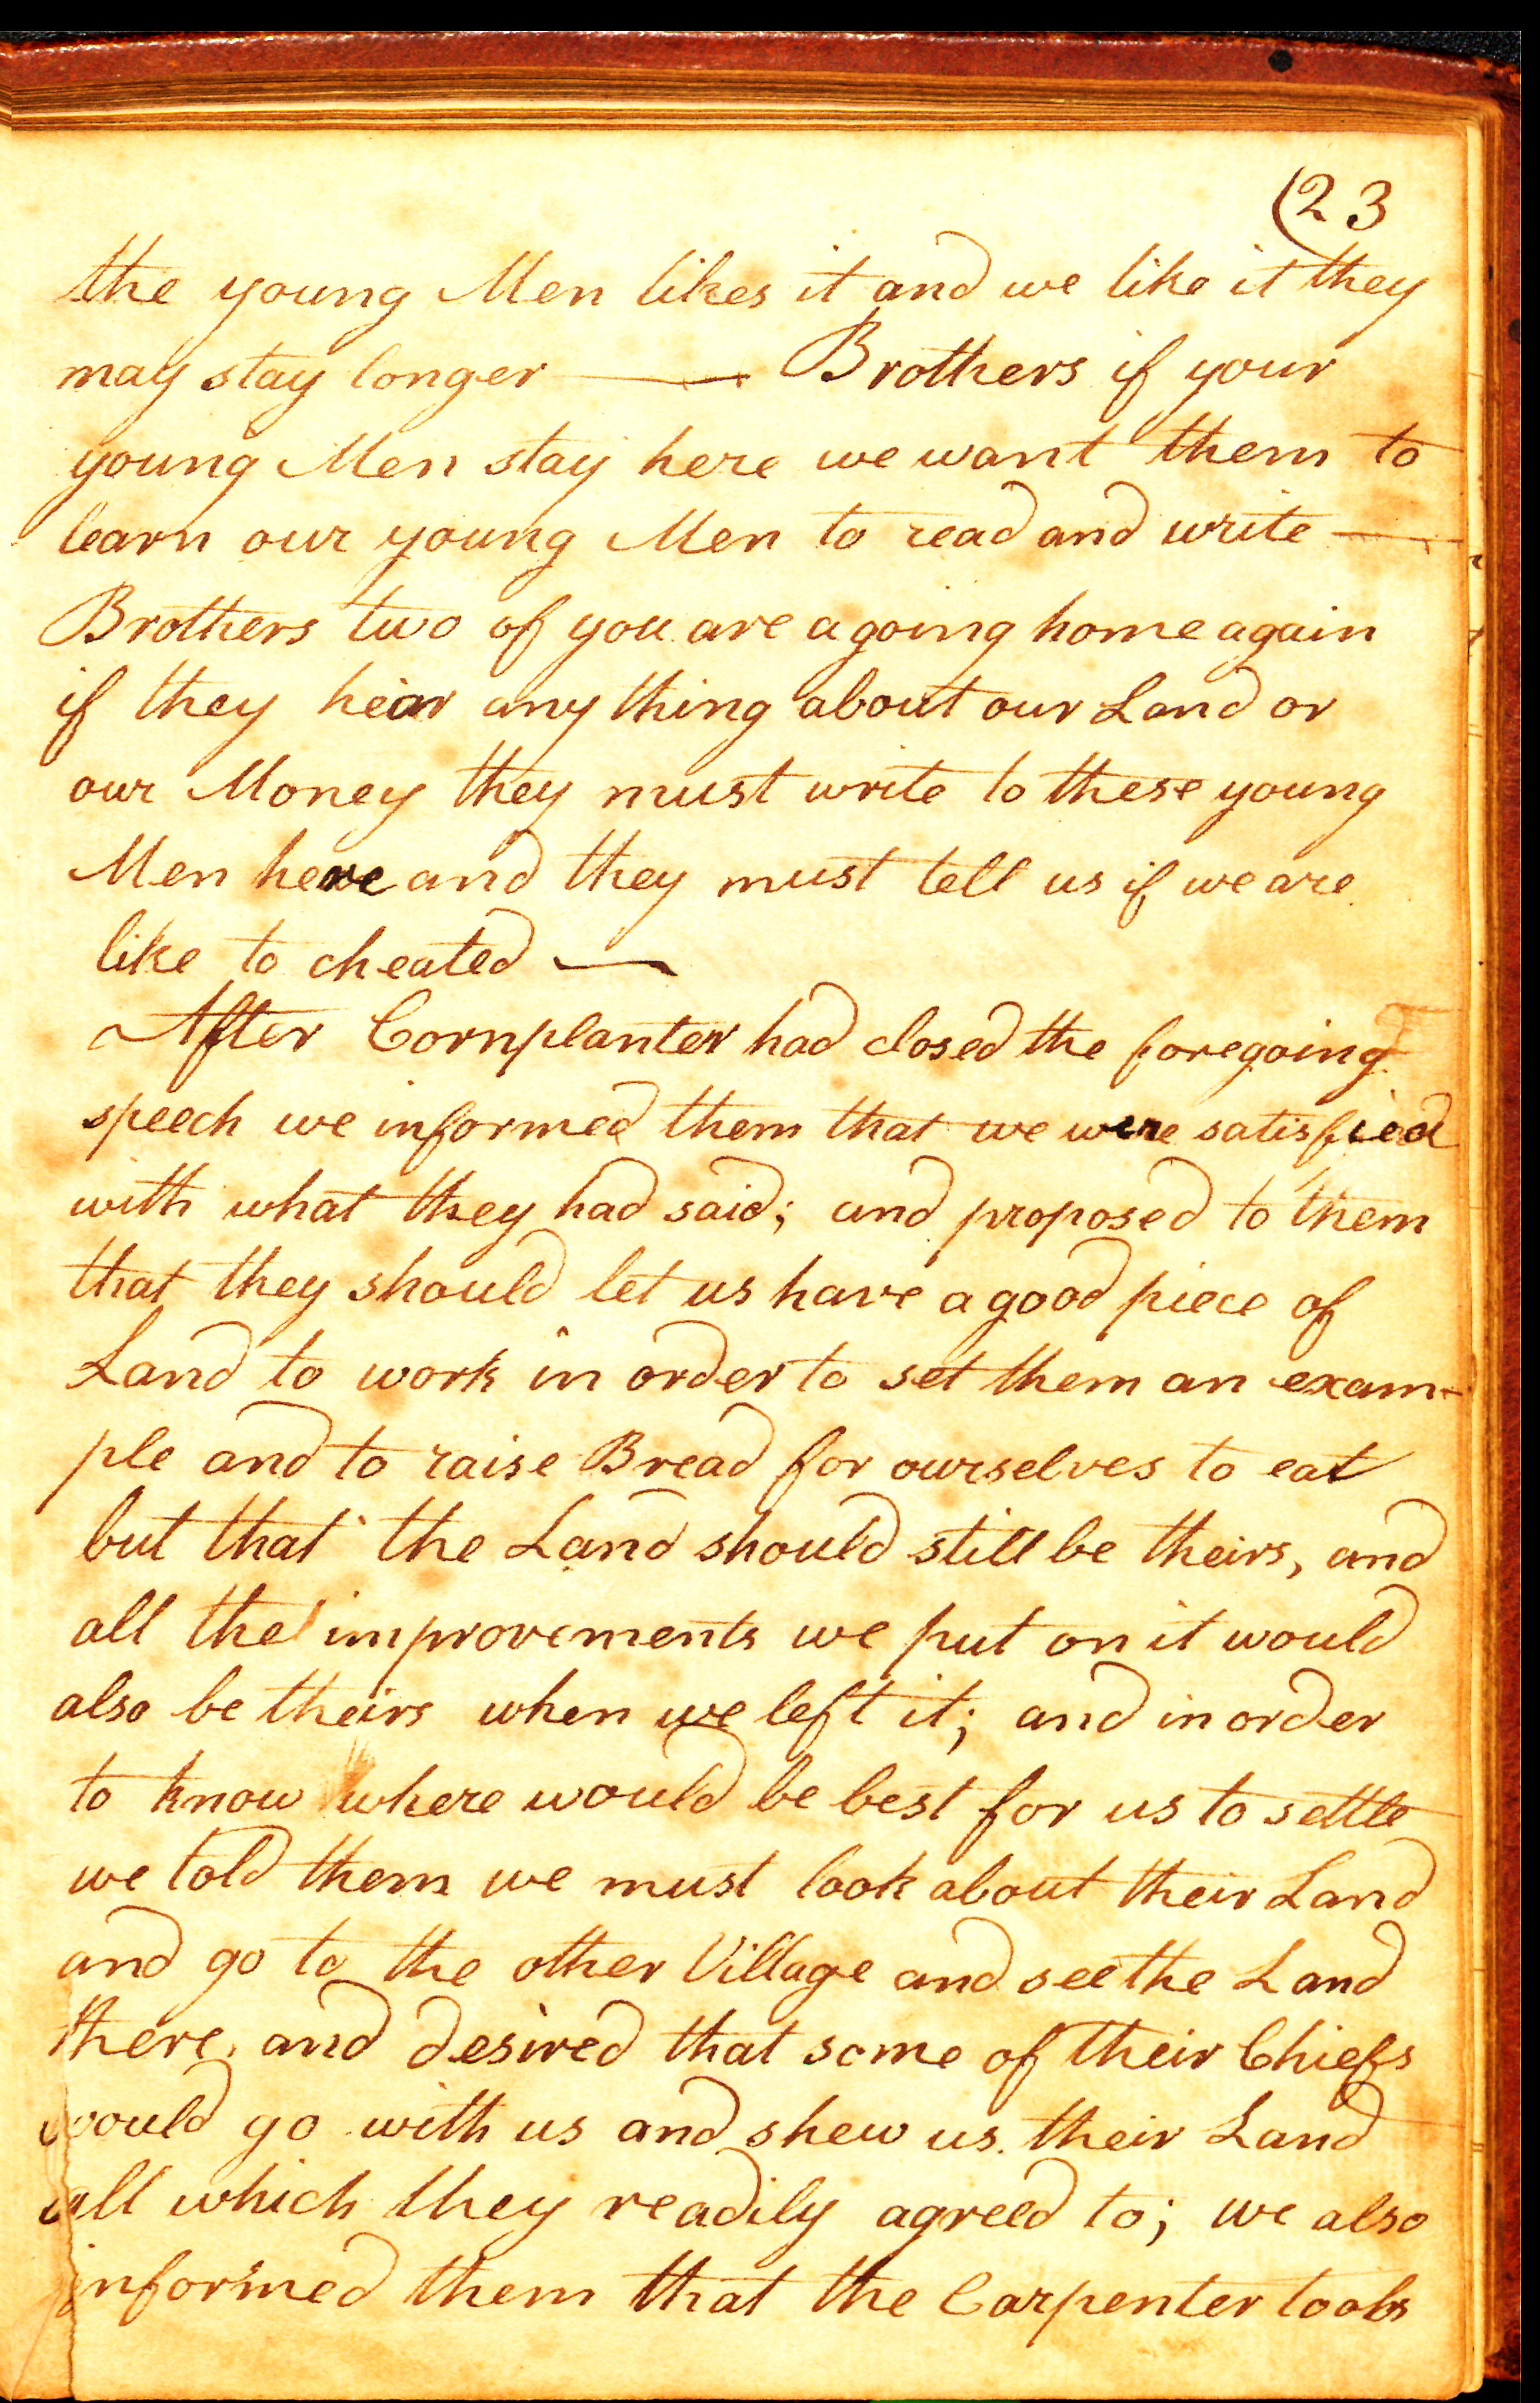 (23
the young Men likes it and we like it they
may stay longer —— Brothers if your
young Men stay here we want them to
learn our young Men to read and write —
Brothers two of you are agoing home again
if they hear any thing about our Land or
our Money they must write to these young
Men here and they must tell us if we are
like to cheated —
After Cornplanter had closed the foregoing
speech we informed them that we were satisfied
with what they had said; and proposed to them
that they should let us have a good piece of
Land to work in order to set them an exam-
ple and to raise Bread for ourselves to eat
but that the Land should still be theirs, and
all the improvements we put on it would
also be theirs when we left it; and in order
to know where would be best for us to settle
we told them we must look about their Land
and go to the other Village and see the Land
there, and desired that some of their Chiefs
would go with us and shew us their Land
all which they readily agreed to; we also
informed them that the Carpenter tools